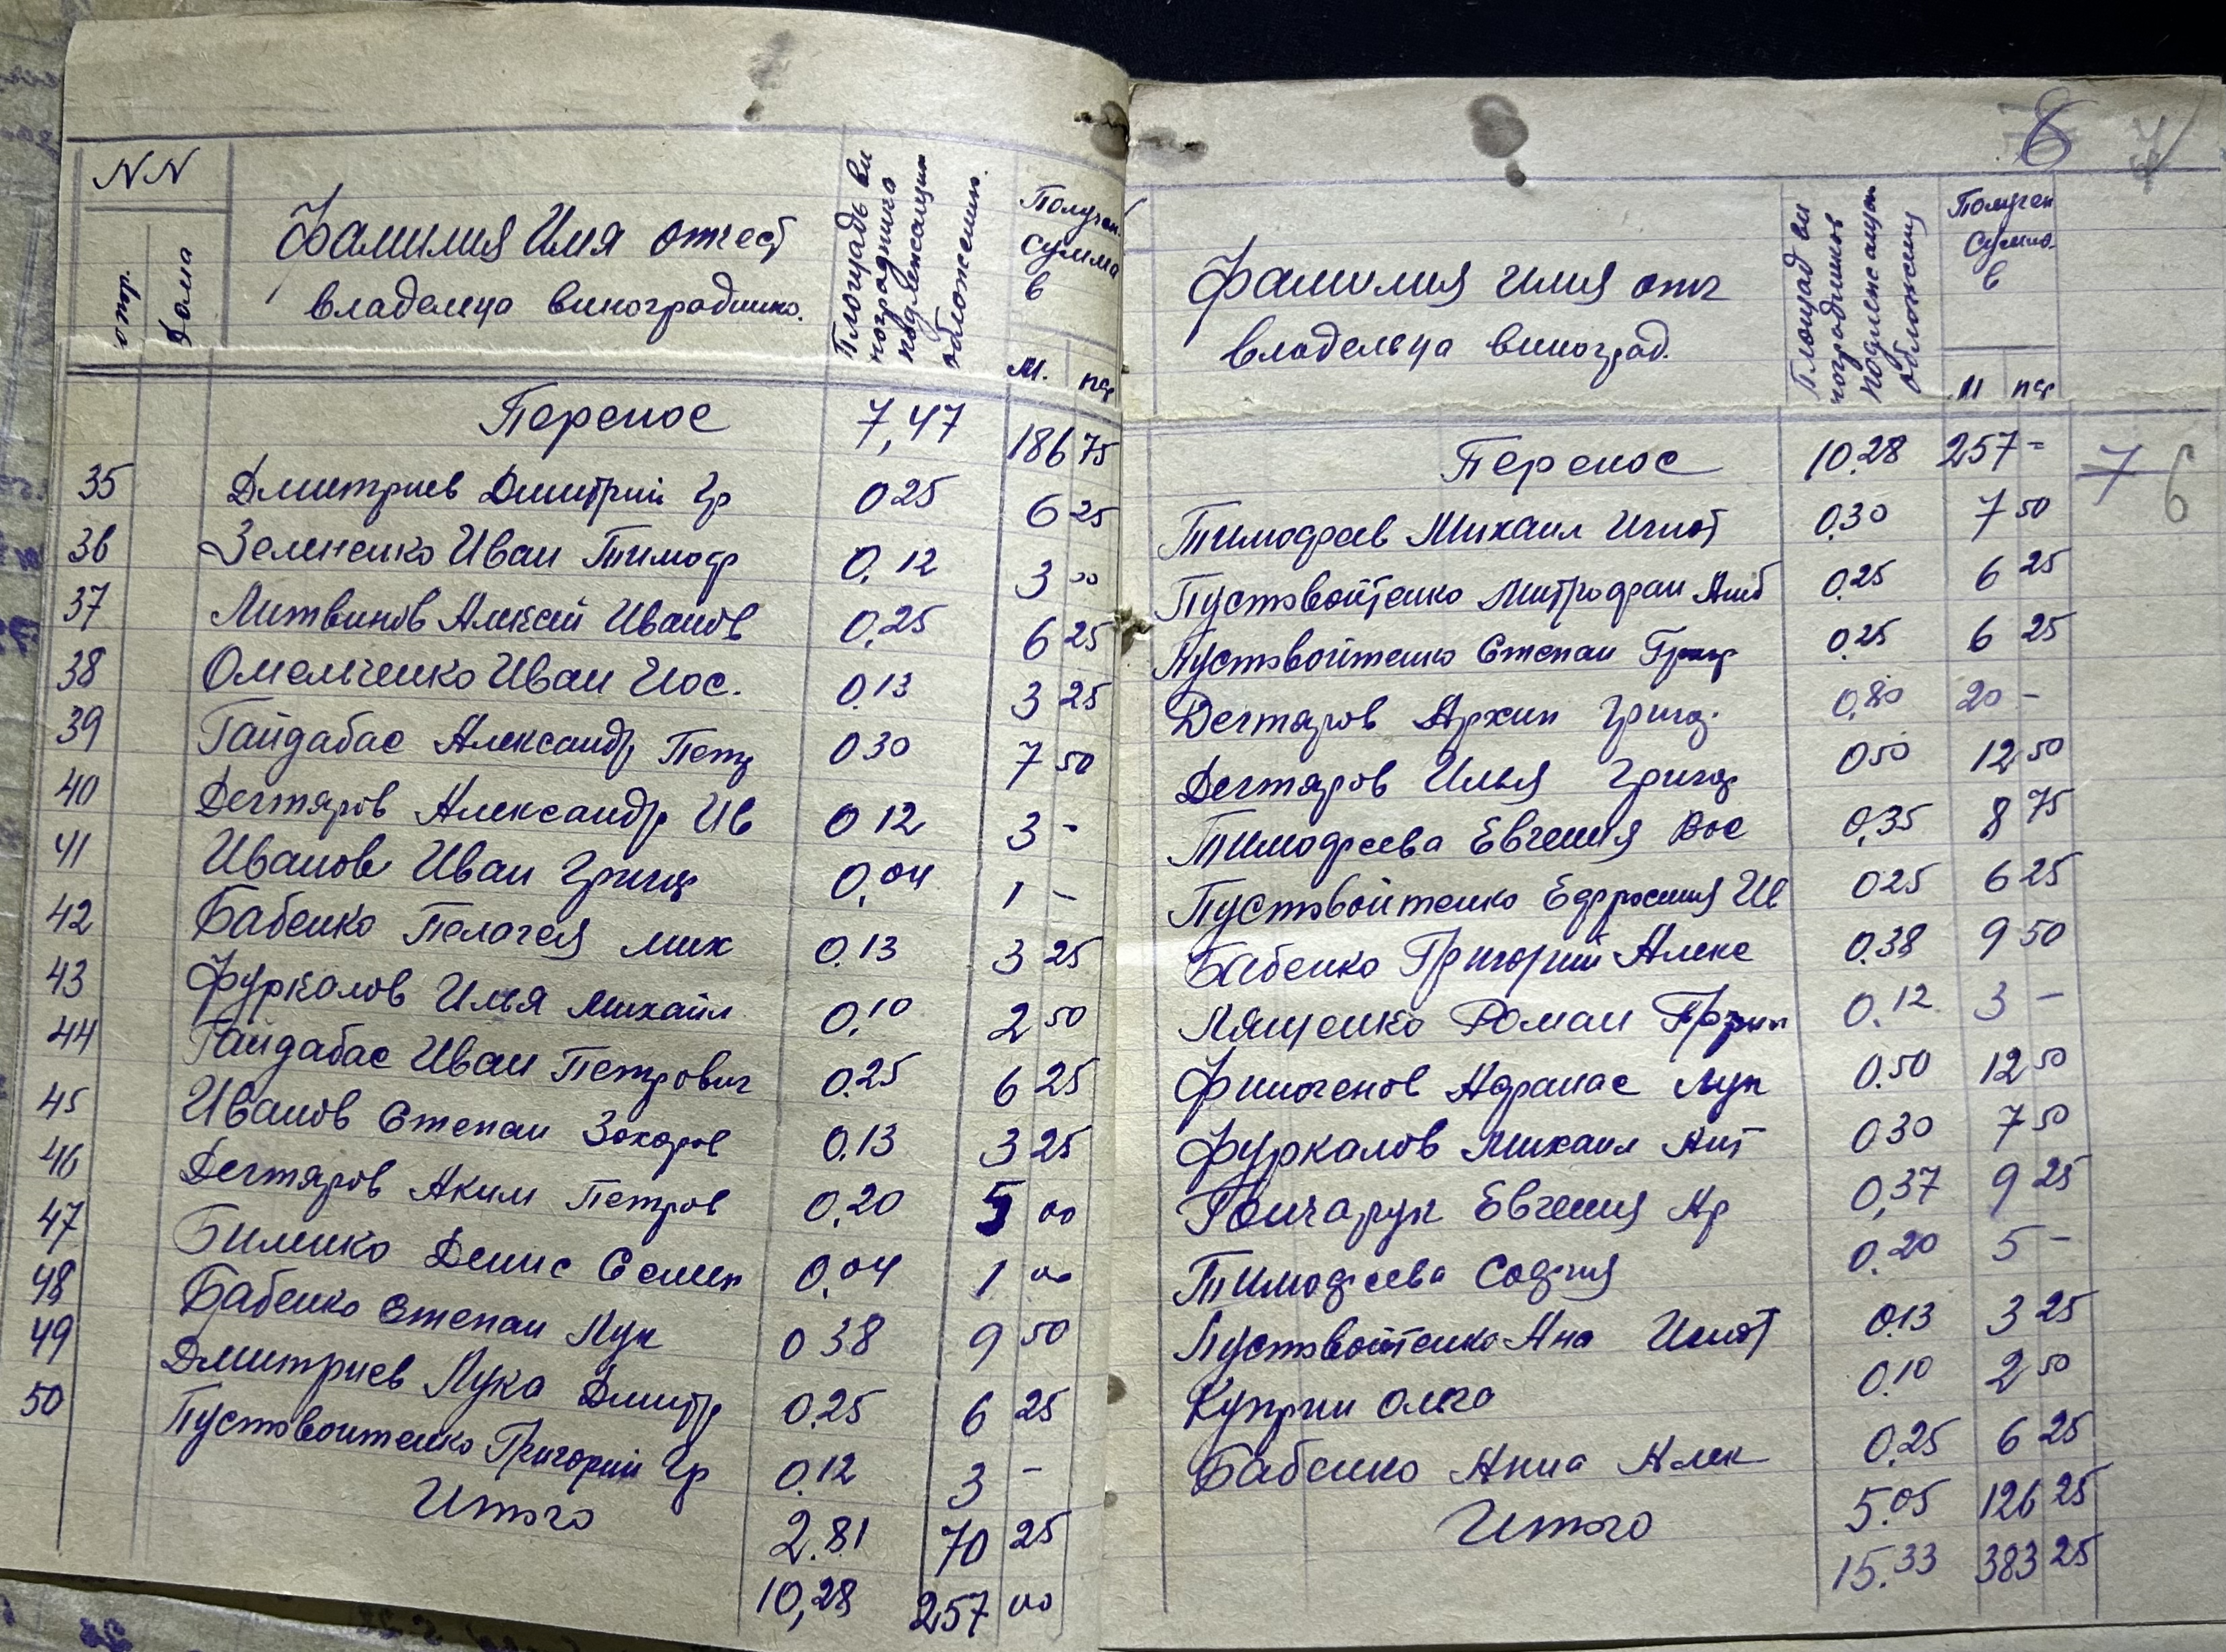 NN
отр.
Дома
Фамилия Имя отчест
владельца виноградника.
Площадь ви
ноградника
подлежащих
обложению.
Получен.
сумма
в
М. пф
Перенос 7,47 186 75
35 Дмитриев Дмитрий Гр 0 25 6 25
36 Зелененко Иван Тимоф 0,12 3 00
37 Литвинов Алексей Иванов 0,25 6 25
38 Омельченко Иван Иос. 0.13 3 25
39 Гайдабас Александр Петр 0 30 7 50
40 Дегтяров Александр Ив 0 12 3 -
41 Иванов Иван Григ 0,04 1 -
42 Бабенко Пелагея Мих 0.13 3 25
43 Фуркалов Илья Михайл 0,10 2 50
44 Гайдабас Иван Петрович 0.25 6 25
45 Иванов Степан Захаров 0.13 3 25
46 Дегтяров Аким Петров 0,20 5 00
47 Биленко Денис Семен 0,04 1 00
48 Бабенко Степан Лук 0 38 9 50
49 Дмитриев Лука Дмитр 0.25 6 25
50 Пустовойтенко Григорий Гр 0.12 3 -
Итого 2.81 70 25
10,28 257 00
6 7
Фамилия имя отч
владельца виноград.
Площад ви
ноградников
подлежащих
обложению
Получен
сумма
в
М пф
Перенос 10.28 257 = 7 6
Тимофеев Михаил Игнат 0.30 7 50
Пустовойтенко Митрофан Амб 0.25 6 25
Пустовойтенко Степан Григ 0.25 6 25
Дегтяров Архип Григ. 0,80 20 -
Дегтяров Илья Григ 0 50 12 50
Тимофеева Евгения Вас 0,35 8 75
Пустовойтенко Ефросиния Ив 0 25 6 25
Бабенко Григорий Алекс 0.38 9 50
Лященко Роман 0.12 3 -
Финогенов Афанас Лук 0.50 12 50
Фуркалов Михаил Ант 0 30 7 50
Гончарук Евгения Ар 0,37 9 25
Тимофеева София 0.20 5 -
Пустовойтенко Ана Игнат 0.13 3 25
Куприн Ольга 0.10 2 50
Бабенко Анна Алек 0.25 6 25
Итого 5.05 126 25
15.33 383 25